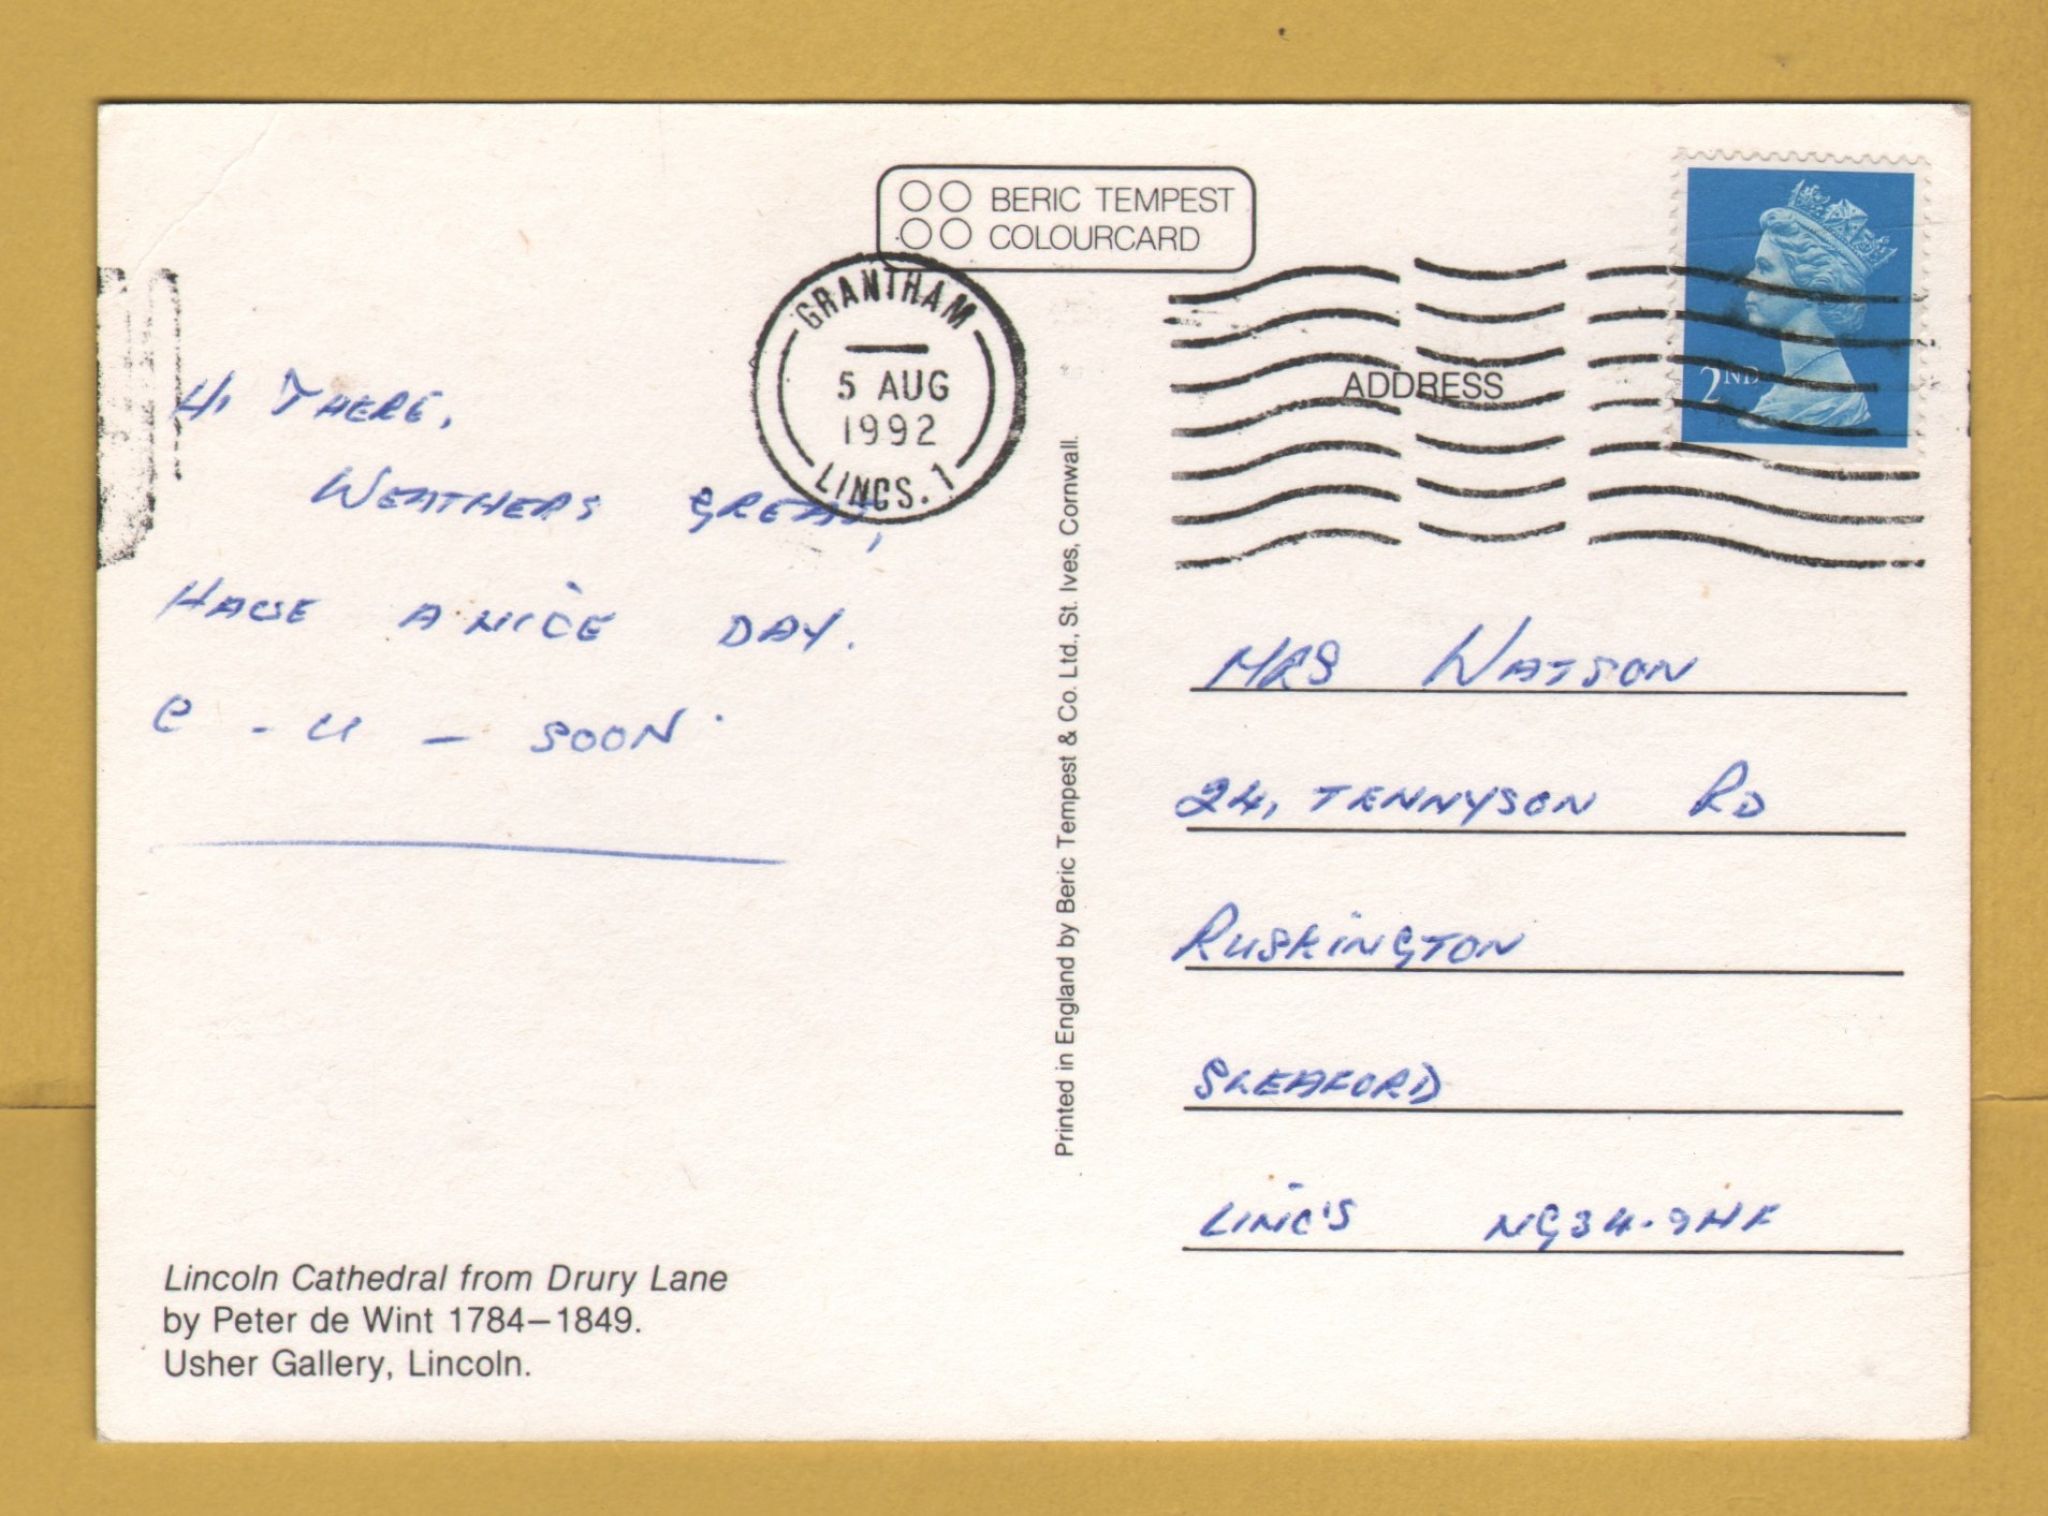 BERIC TEMPEST
COLOURCARD
GRANTHAM
5 AUG
1992
LINCS. 1
2ND
ADDRESS
HI THERE,
WEATHERS GREAT,
HAVE A NICE DAY.
C - U - SOON.
Printed in England by Beric Tempest & Co. Ltd., St. Ives, Cornwall.
MRS WATSON
24, TENNYSON RD
RUSKINGTON
SLEAFORD
LINC'S NG34.9HF
Lincoln Cathedral from Drury Lane
by Peter de Wint 1784–1849.
Usher Gallery, Lincoln.